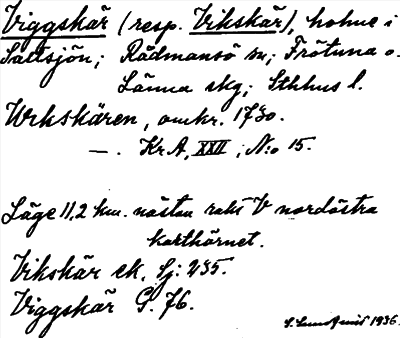 Viggskär (resp. Vikskär), holme i
Saltsjön; Rådmansö sn; Frötuna o.
Länna skg; Sthlms l.
Urkskären, omkr. 1730.
—. Kr A, XXII, N:o 15.
Läge 11,2 km. nästan rakt V nordöstra
karthörnet.
Vikskär ek. Sj: 235.
Viggskär G. 76.
1936.